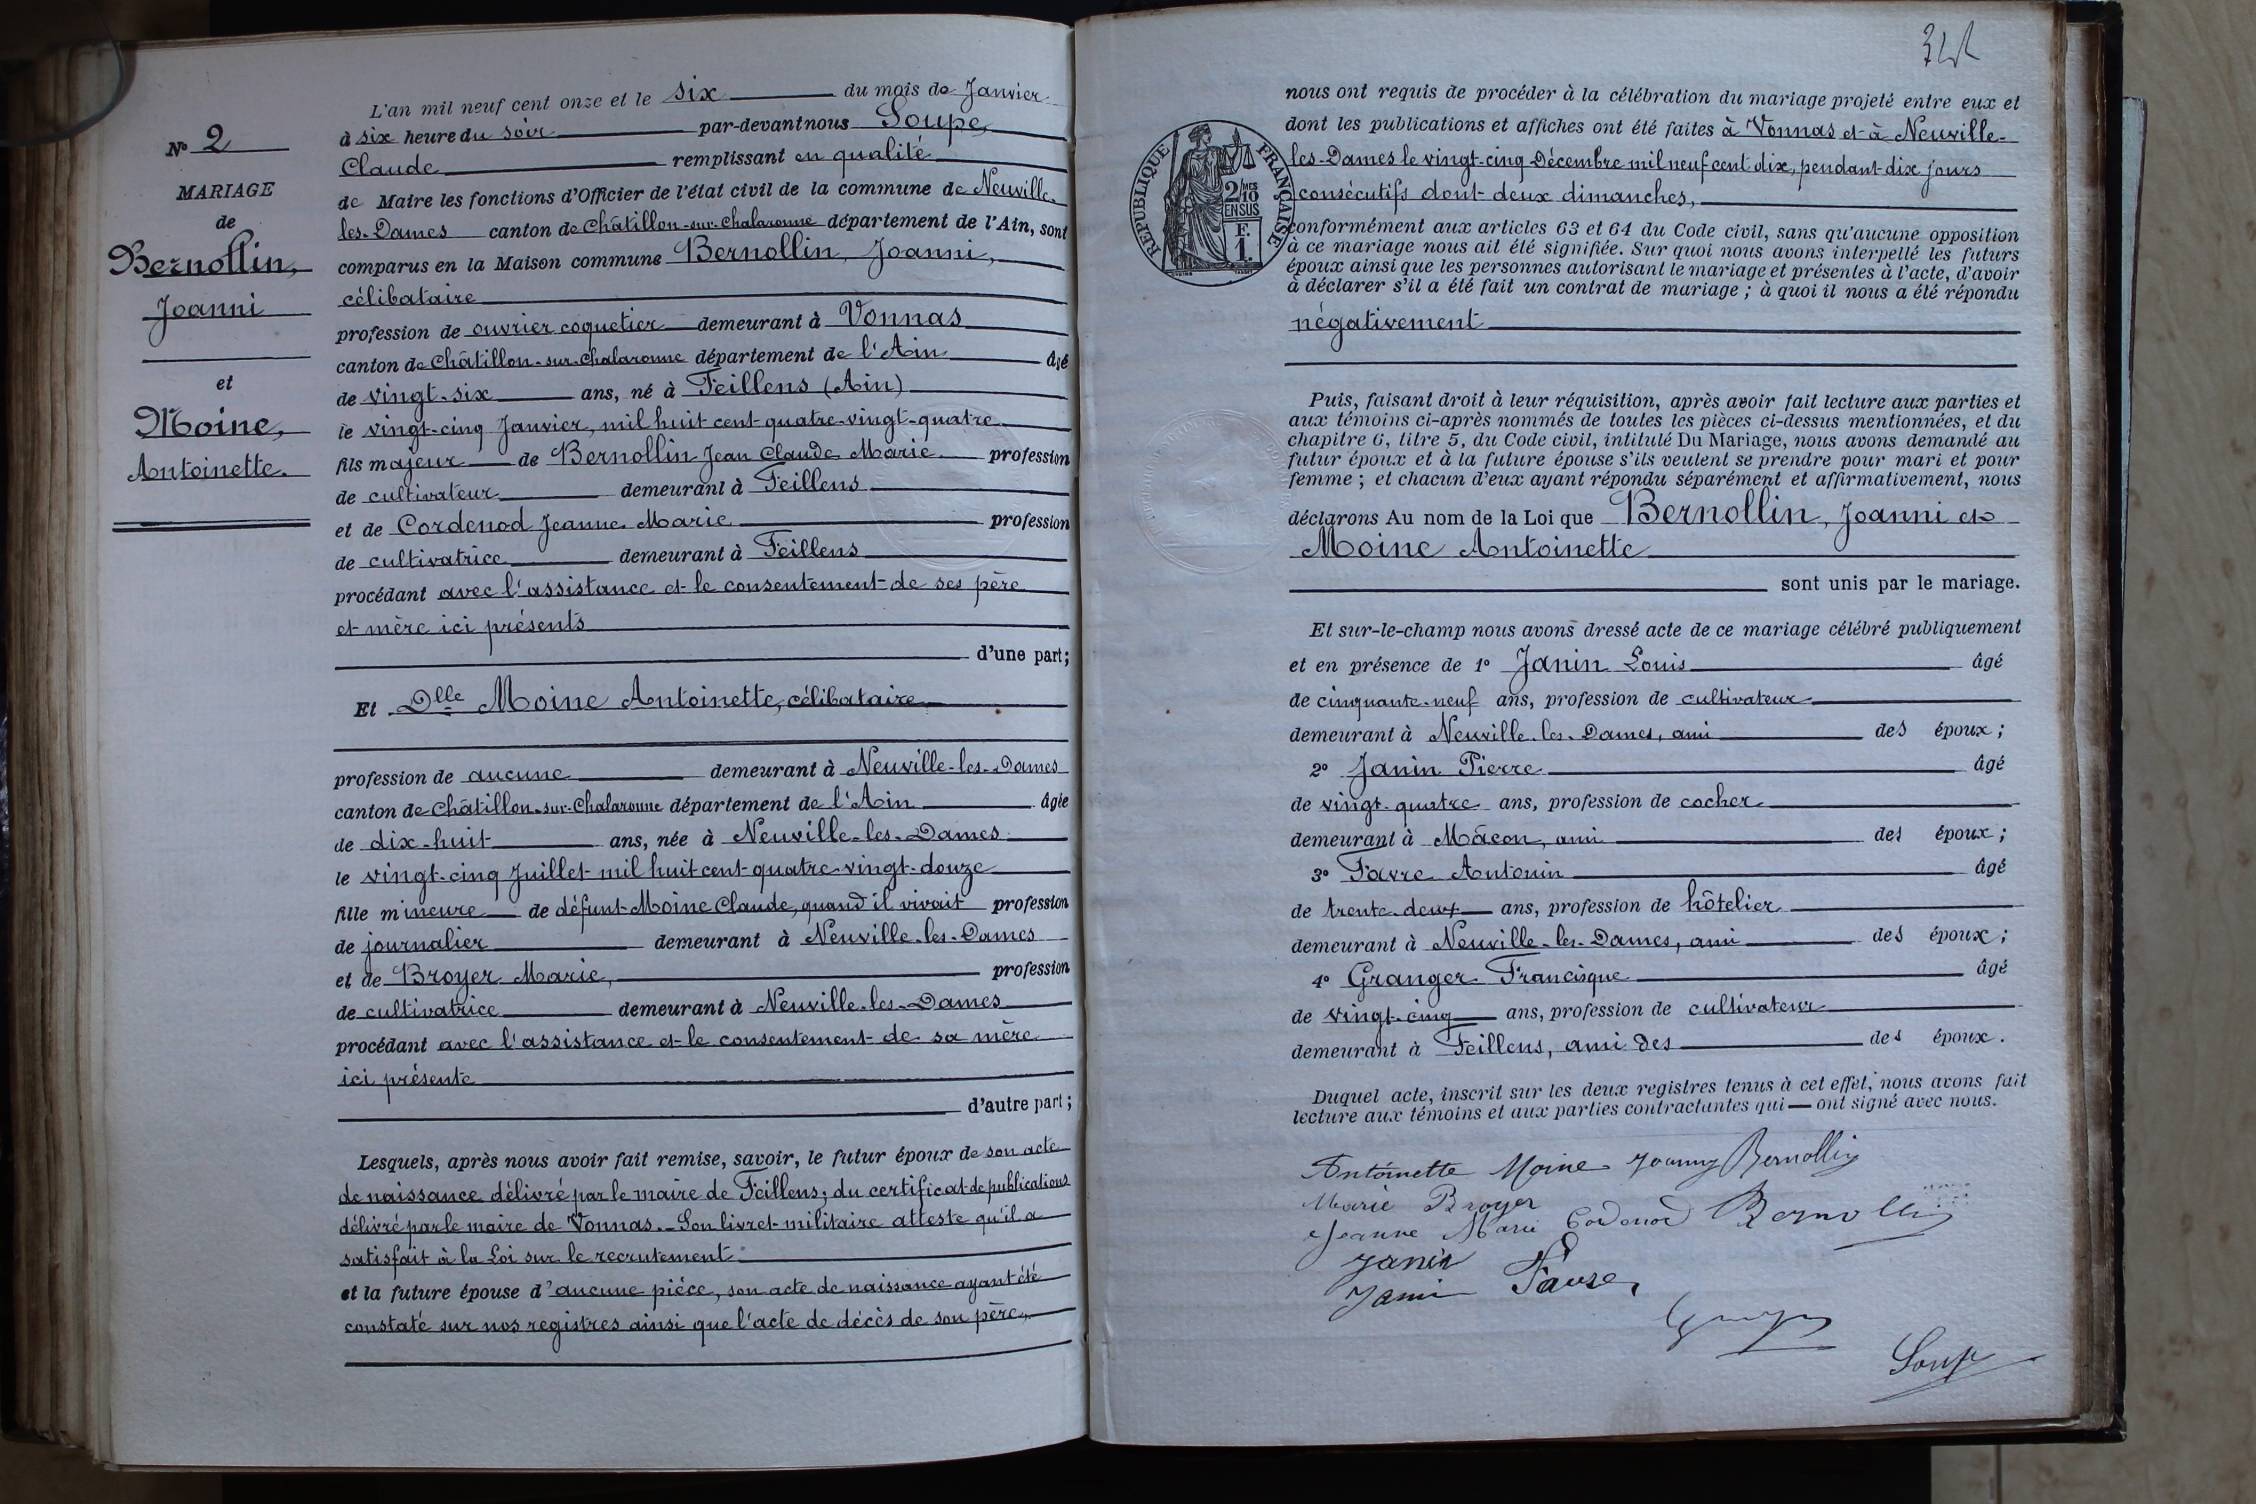 L'an mil neuf cent onze et le six du mois de Janvier
à six heure du soir par-devant nous Soupe
Claude remplissant en qualité
de Maire les fonctions d'Officier de l'état civil de la commune de Neuville-
les-Dames canton de Châtillon-sur-Chalaronne département de l'Ain, sont
comparus en la Maison commune Bernollin, Joanni,
célibataire
profession de ouvrier coquetier demeurant à Vonnas
canton de Châtillon-sur-Chalaronne département de l'Ain âgé
de vingt-six ans, né à Feillens (Ain)
le vingt-cinq Janvier, mil huit cent quatre-vingt-quatre
fils majeur de Bernollin Jean Claude Marie profession
de cultivateur demeurant à Feillens
et de Cordenod Jeanne Marie profession
de cultivatrice demeurant à Feillens
procédant avec l'assistance et le consentement de ses père
et mère ici présents
d'une part;
Et Dlle Moine Antoinette, célibataire
profession de aucune demeurant à Neuville-les-Dames
canton de Châtillon-sur-Chalaronne département de l'Ain âgée
de dix-huit ans, née à Neuville-les-Dames
le vingt-cinq Juillet mil huit cent quatre-vingt-douze
fille mineure de défunt Moine Claude, quand il vivait profession
de journalier demeurant à Neuville-les-Dames
et de Broyer Marie, profession
de cultivatrice demeurant à Neuville-les-Dames
procédant avec l'assistance et le consentement de sa mère
ici présente
d'autre part;
Lesquels, après nous avoir fait remise, savoir, le futur époux de son acte
de naissance délivré par le maire de Feillens; du certificat de publications
délivré par le maire de Vonnas. Son livret militaire atteste qu'il a
satisfait à la Loi sur le recrutement.
et la future épouse d'aucune pièce, son acte de naissance ayant été
constaté sur nos registres ainsi que l'acte de décès de son père,
N° 2
MARIAGE
de
Bernollin,
Joanni
et
Moine,
Antoinette.
RÉPUBLIQUE FRANÇAISE
2/MES
10
EN SUS
F.
1.
nous ont requis de procéder à la célébration du mariage projeté entre eux et
dont les publications et affiches ont été faites à Vonnas et à Neuville-
les-Dames le vingt-cinq Décembre mil neuf cent dix, pendant dix jours
consécutifs dont deux dimanches,
conformément aux articles 63 et 64 du Code civil, sans qu'aucune opposition
à ce mariage nous ait été signifiée. Sur quoi nous avons interpellé les futurs
époux ainsi que les personnes autorisant le mariage et présentes à l'acte, d'avoir
à déclarer s'il a été fait un contrat de mariage; à quoi il nous a été répondu
négativement
Puis, faisant droit à leur réquisition, après avoir fait lecture aux parties et
aux témoins ci-après nommés de toutes les pièces ci-dessus mentionnées, et du
chapitre 6, titre 5, du Code civil, intitulé Du Mariage, nous avons demandé au
futur époux et à la future épouse s'ils veulent se prendre pour mari et pour
femme; et chacun d'eux ayant répondu séparément et affirmativement, nous
déclarons Au nom de la Loi que Bernollin, Joanni et
Moine Antoinette
sont unis par le mariage.
Et sur-le-champ nous avons dressé acte de ce mariage célébré publiquement
et en présence de 1° Janin Louis âgé
de cinquante-neuf ans, profession de cultivateur
demeurant à Neuville-les-Dames, ami des époux;
2° Janin Pierre âgé
de vingt-quatre ans, profession de cocher
demeurant à Mâcon, ami des époux;
3° Favre Antonin âgé
de trente-deux ans, profession de hôtelier
demeurant à Neuville-les-Dames, ami des époux;
4° Granger Francisque âgé
de vingt-cinq ans, profession de cultivateur
demeurant à Feillens, ami des des époux.
Duquel acte, inscrit sur les deux registres tenus à cet effet, nous avons fait
lecture aux témoins et aux parties contractantes qui — ont signé avec nous.
Antoinette Moine Joanny Bernollin
Marie Broyer
Jeanne Marie Cordenod Bernollin
Janin
Janin Favre
Soupe